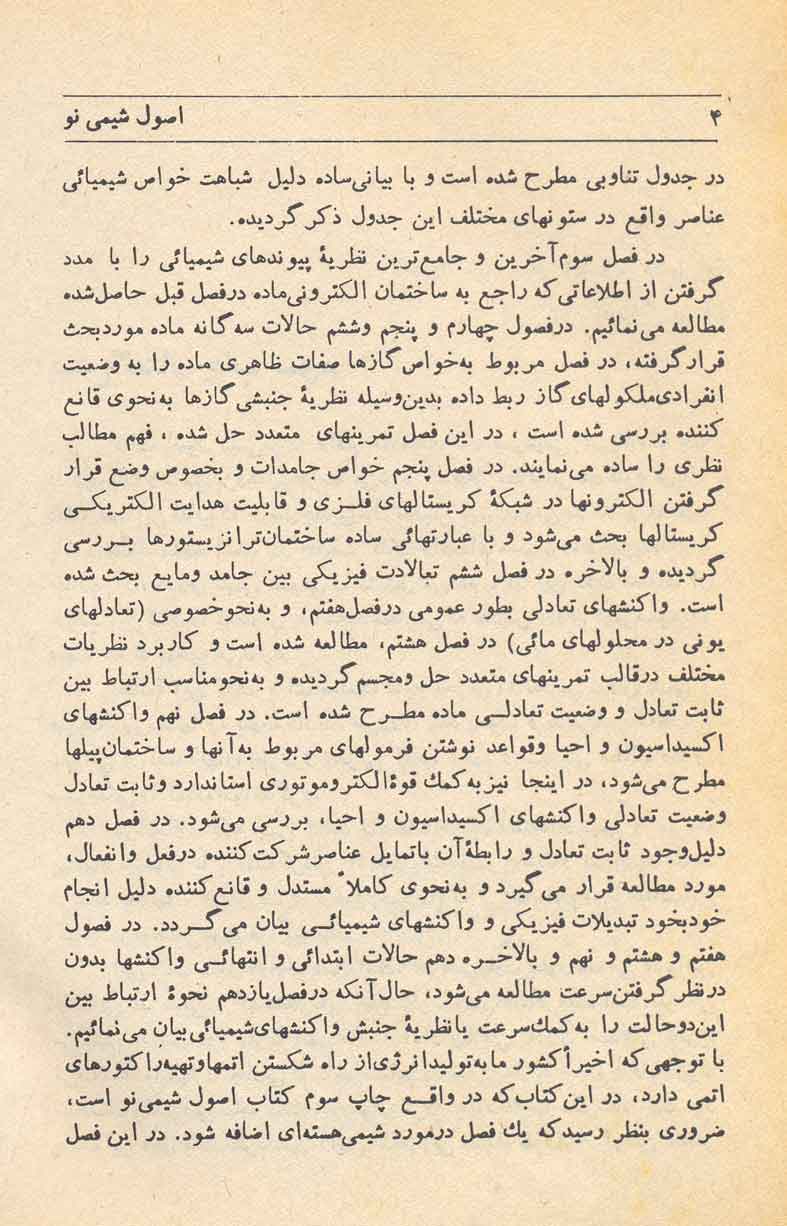 ۴
اصول شیمی نو
در جدول تناوبی مطرح شده است و با بیانی‌ساده دلیل شباهت خواص شیمیائی
عناصر واقع در ستونهای مختلف این جدول ذکر گردیده.
در فصل سوم آخرین و جامع‌ترین نظریۀ پیوندهای شیمیائی را با مدد
گرفتن از اطلاعاتی که راجع به ساختمان الکترونی‌ماده درفصل قبل حاصل‌شده
مطالعه می‌نمائیم. درفصول چهارم و پنجم وششم حالات سه‌گانه ماده موردبحث
قرار گرفته، در فصل مربوط به‌خواص گازها صفات ظاهری ماده را به وضعیت
انفرادی‌ملکولهای گاز ربط داده بدین‌وسیله نظریۀ جنبشی گازها به‌نحوی قانع
کننده بررسی شده است ، در این فصل تمرینهای متعدد حل شده ، فهم مطالب
نظری را ساده می‌نمایند. در فصل پنجم خواص جامدات و بخصوص وضع قرار
گرفتن الکترونها در شبکۀ کریستالهای فلـزی و قابلیت هدایت الکتریکـی
کریستالها بحث می‌شود و با عبارتهائی ساده ساختمان‌ترانزیستورها بـررسی
گردیده و بالاخره در فصل ششم تعالادت فیزیکی بین جامد ومایع بحث شده
است. واکنشهای تعادلی بطور عمومی درفصل‌هفتم، و به‌نحوخصوصی (تعادلهای
یونی در محلولهای مائی) در فصل هشتم، مطالعه شده است و کاربرد نظریات
مختلف درقالب تمرینهای متعدد حل ومجسم گردیده و به‌نحومناسب ارتباط بین
ثابت تعادل و وضعیت تعادلـی ماده مطـرح شده است. در فصل نهم واکنشهای
اکسیداسیون و احیا وقواعد نوشتن فرمولهای مربوط به‌آنها و ساختمان‌پیلها
مطرح می‌شود، در اینجا نیز به کمك قوۀ‌الکتروموتوری استاندارد وثابت تعادل
وضعیت تعادلی واکنشهای اکسیداسیون و احیا، بررسی می‌شود. در فصل دهم
دلیل‌وجود ثابت تعادل و رابطۀ‌آن باتمایل عناصرشرکت‌کننده درفعل وانفعال،
مورد مطالعه قرار می‌گیرد و به‌نحوی کاملاً مستدل و قانع‌کننده دلیل انجام
خودبخود تبدیلات فیزیکی و واکنشهای شیمیائـی بیان می‌گـردد. در فصول
هفتم و هشتم و نهم و بالاخـره دهم حالات ابتدائی و انتهائـی واکنشها بدون
درنظر گرفتن‌سرعت مطالعه می‌شود، حال‌آنکه درفصل‌یازدهم نحوۀ ارتباط بین
این‌دوحالت را به‌کمك‌سرعت یانظریۀ جنبش واکنشهای‌شیمیائی‌بیان می‌نمائیم.
با توجهی‌که اخیراً‌کشور ما‌به‌تولیدانرژی‌از راه شکستن اتمهاوتهیه‌راکتورهای
اتمی دارد، در این‌کتاب‌که در واقـع چاپ سوم کتاب اصول شیمی‌نو است،
ضروری بنظر رسیدکه یك فصل درمورد شیمی‌هسته‌ای اضافه شود. در این فصل